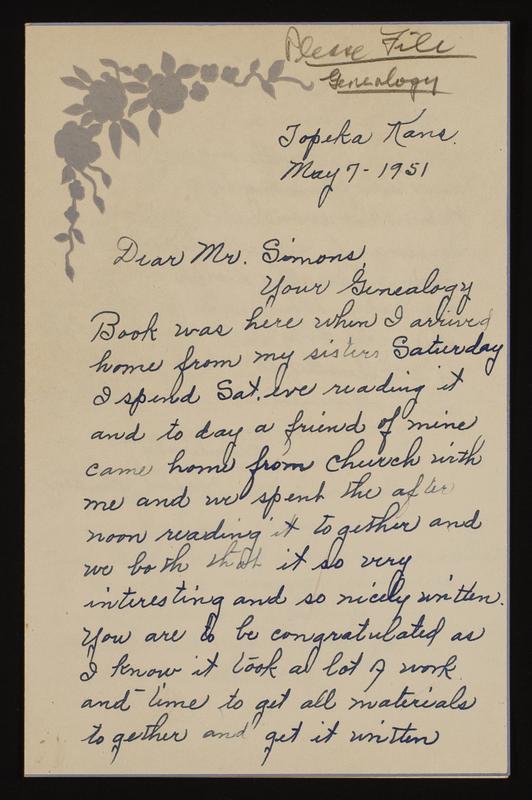 Please File
Genealogy
Topeka Kans.
May 7 - 1951
Dear Mr. Simons,
Your Genealogy
Book was here when I arrived
home from my sisters Saturday
I spend Sat. eve reading it
and to day a friend of mine
came home from church with
me and we spent the after
noon reading it together and
we both that it so very
interesting and so nicely written.
You are to be congratulated as
I know it took a lot of work
and time to get all materials
together and get it written